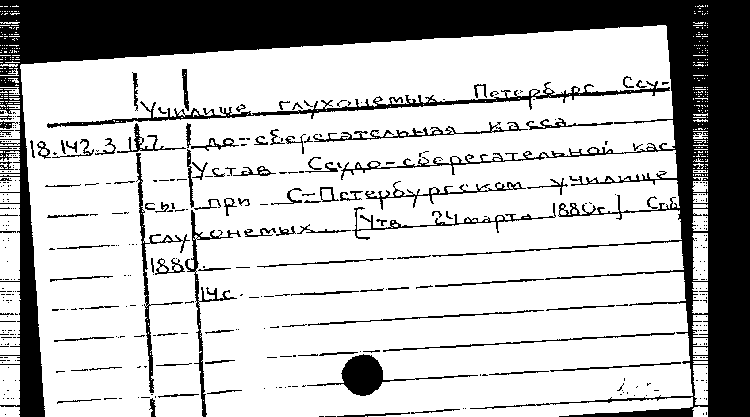 Училище глухонемых. Петербург. Ссу-
18.142.3.127. до-сберегательная касса.
Устав Ссудо-сберегательной кас-
сы при С-Петербургском училище
глухонемых. [Утв. 24 марта 1880г.]. Спб,
1880.
14с.